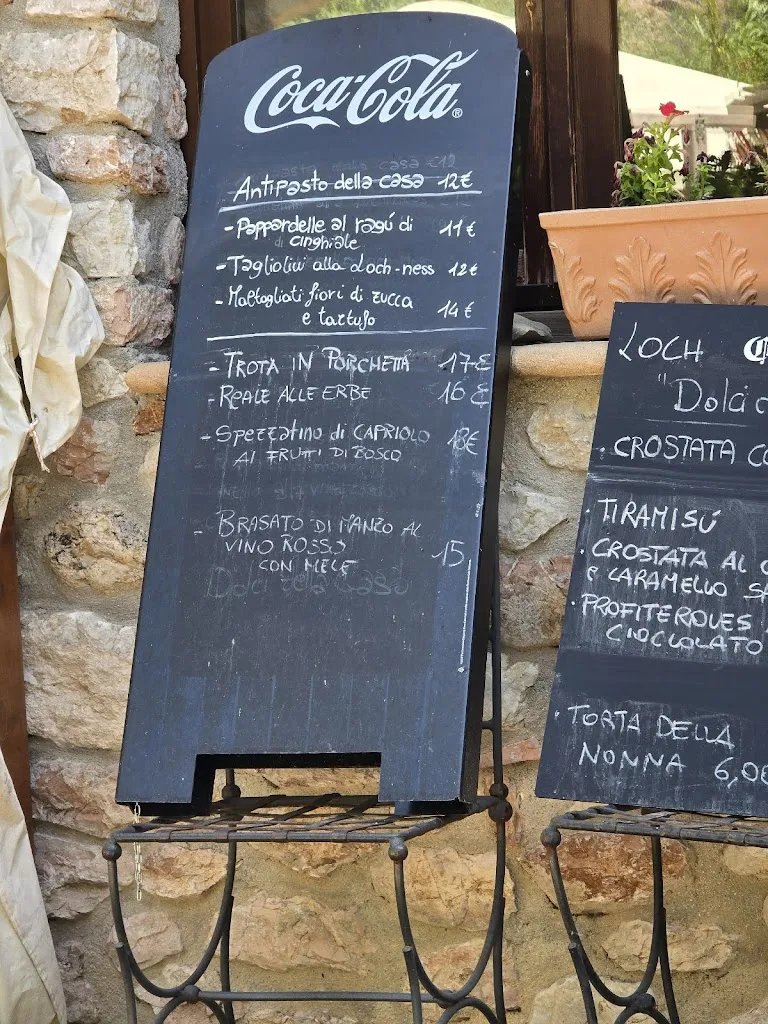 Coca-Cola®
Antipasto della casa 12€
- Pappardelle al ragú di 11€
di cinghiale
- Tagliolini alla Loch-ness 12€
- Maltagliati fiori di zucca
e tartufo 14€
- TROTA IN PORCHETTA 17€
- REALE ALLE ERBE 16€
- SPEZZATINO di CAPRIOLO 18€
AI FRUTTI DI BOSCO
- BRASATO DI MANZO AL
VINO ROSSO 15
CON MELE
Dolci della Casa
LOCH
"Dolci
· CROSTATA
· TIRAMISÚ
· CROSTATA AL
e CARAMELLO
· PROFITEROUES
CIOCCOLATO
· TORTA DELLA
NONNA 6,00